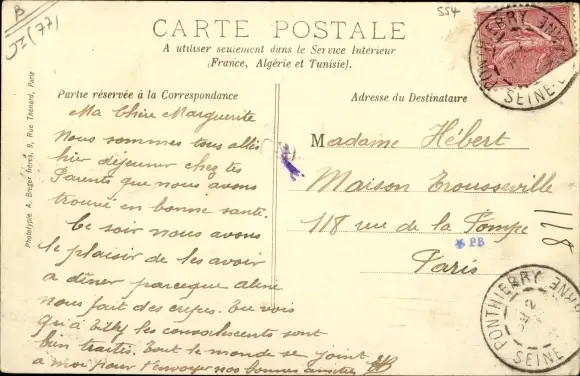 B
JZ(77)
554
CARTE POSTALE
A utiliser seulement dans le Service Intérieur
(France, Algérie et Tunisie).
Partie réservée à la Correspondance
Adresse du Destinataire
Phototypie A. Breger frères, 9, Rue Thénard, Paris
Ma Chère Marguerite
Nous sommes tous allés
hier déjeuner chez tes
Parents que nous avons
trouvé en bonne santé.
Ce soir nous avons
le plaisir de les avoir
a dîner parceque Aline
nous fait des crêpes. Tu vois
qu'à Tilly les convalescents sont
bien traités. Tout le monde se joint
a moi pour t'envoyer nos bonnes amitiés
Madame Hébert
Maison Trousseville
118 rue de la Pompe
Paris
PB
118
PONTHIERRY
SEINE
PONTHIERRY
SEINE